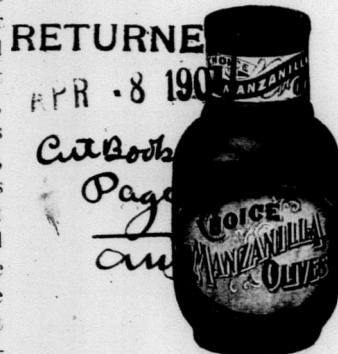 RETURNE
APR - 8 190
Cut Book
Page
CHOICE
MANZANILLA
CHOICE
MANZANILLA
OLIVES